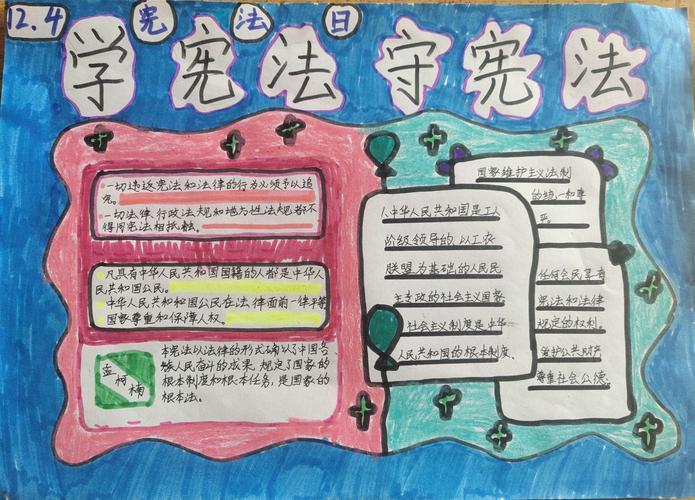 12.4 宪法日
学宪法 守宪法
一切违返宪法和法律的行为必须予以追
究。
一切法律、行政法规和地方性法规都不
得同宪法相抵触。
凡具有中华人民共和国国籍的人都是中华人
民共和国公民。
中华人民共和和国公民在法律面前一律平等
国家尊重和保障人权。
孟柯楠
本宪法以法律的形式确认了中国各
族人民奋斗的成果,规定了国家的
根本制度和根本任务,是国家的
根本法。
国家维护主义法制
的统一和尊
严
中华人民共和国是工人
阶级领导的,以工农
联盟为基础的人民民
主专政的社会主义国家
社会主义制度是中华
人民共和国的根本制度.
任何公民享有
宪法和法律
规定的权利。
爱护公共财产
尊重社会公德